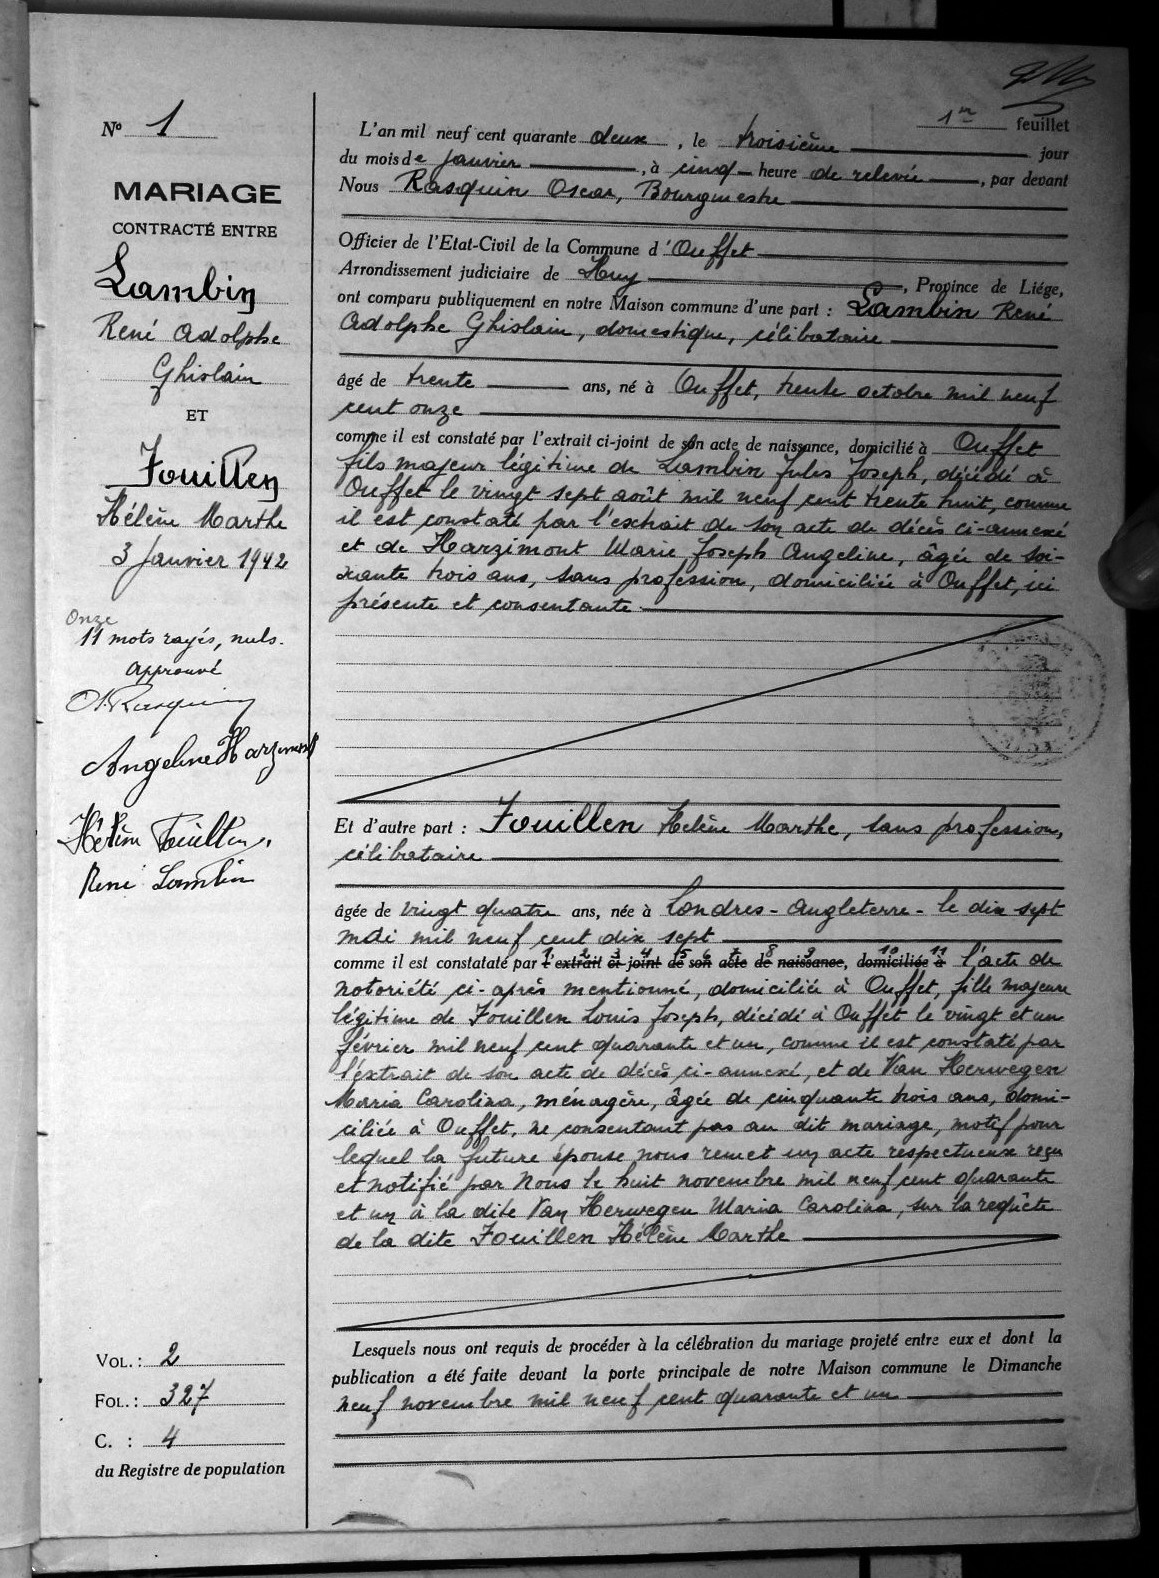 1er feuillet
N° 1
MARIAGE
CONTRACTÉ ENTRE
Lambin
René Adolphe
Ghislain
ET
Fouillen
Hélène Marthe
3 Janvier 1942
Onze
11 mots rayés, nuls.
Approuvé
O. Rasquin
Angeline Harzimont
Hélène Fouillen.
René Lambin
VOL. : 2
FOL. : 327
C. : 4
du Registre de population
L'an mil neuf cent quarante deux, le troisième jour
du mois de Janvier, à cinq heure de relevée, par devant
Nous Rasquin Oscar, Bourgmestre
Officier de l'Etat-Civil de la Commune d'Ouffet
Arrondissement judiciaire de Huy, Province de Liége,
ont comparu publiquement en notre Maison commune d'une part : Lambin René
Adolphe Ghislain, domestique, célibataire
âgé de trente ans, né à Ouffet, trente octobre mil neuf
cent onze
comme il est constaté par l'extrait ci-joint de son acte de naissance, domicilié à Ouffet
fils majeur légitime de Lambin Jules Joseph, décédé à
Ouffet le vingt sept août mil neuf cent trente huit, comme
il est constaté par l'extrait de son acte de décès ci-annexé
et de Harzimont Marie Joseph Angeline, âgée de soi-
xante trois ans, sans profession, domiciliée à Ouffet, ici
présente et consentante
Et d'autre part : Fouillen Hélène Marthe, sans profession,
célibataire
âgée de vingt quatre ans, née à Londres - Angleterre - le dix sept
mai mil neuf cent dix sept
1 2 3 4 5 6 7 8 9 10 11
comme il est constataté par l'extrait ci-joint de son acte de naissance, domiciliée à l'acte de
notoriété ci-après mentionné, domiciliée à Ouffet, fille majeure
légitime de Fouillen Louis Joseph, décédé à Ouffet le vingt et un
février mil neuf cent quarante et un, comme il est constaté par
l'extrait de son acte de décès ci-annexé, et de Van Herwegen
Maria Carolina, ménagère, âgée de cinquante trois ans, domi-
ciliée à Ouffet, ne consentant pas au dit mariage, motif pour
lequel la future épouse nous remet un acte respectueux reçu
et notifié par Nous le huit novembre mil neuf cent quarante
et un à la dite Van Herwegen Maria Carolina, sur la requête
de la dite Fouillen Hélène Marthe
Lesquels nous ont requis de procéder à la célébration du mariage projeté entre eux et dont la
publication a été faite devant la porte principale de notre Maison commune le Dimanche
neuf novembre mil neuf cent quarante et un